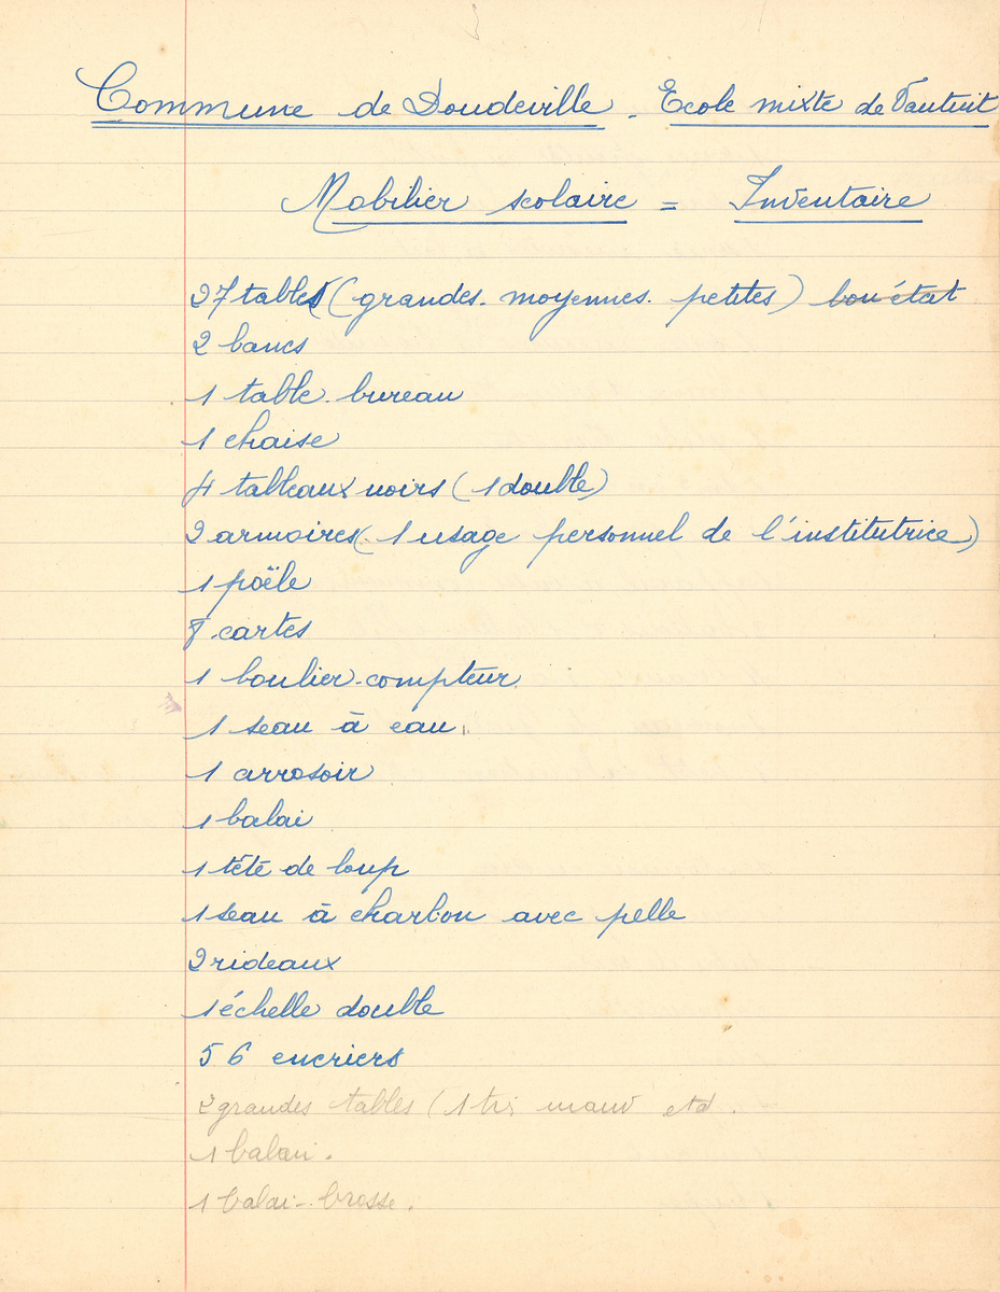 Commune de Doudeville - Ecole mixte de Vautuit
Mobilier scolaire = Inventaire
27 tables (grandes. moyennes. petites) bon état
2 bancs
1 table. bureau
1 chaise
4 tableaux noirs (1 double)
2 armoires (1 usage personnel de l'institutrice)
1 poële
8 cartes
1 boulier-compteur
1 seau à eau
1 arrosoir
1 balai
1 tête de loup
1 seau à charbon avec pelle
2 rideaux
1 échelle double
56 encriers
2 grandes tables (1 très mauv état.
1 balai.
1 balai-brosse.